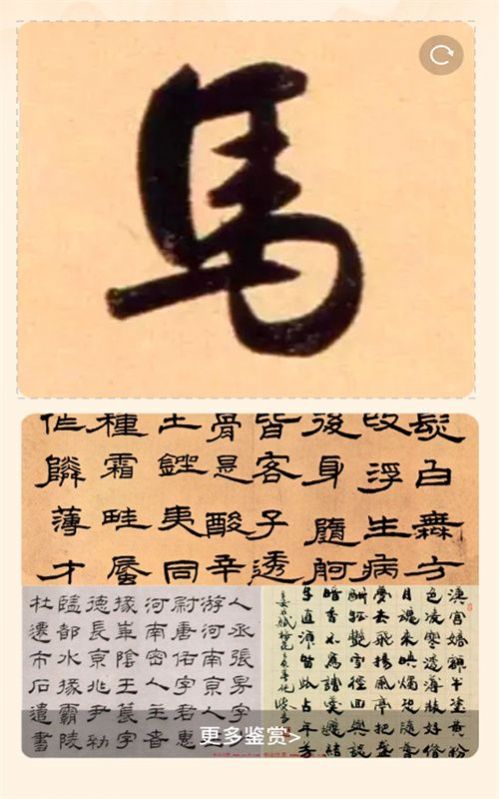 馬
白無方
浮生病
後身隨舸
皆客子透
骨是酸辛
土夷同
種霜畦蜃
作隣薄才
人丞張昇字
游河南京人
尉唐佑字君惠
河南密人主者
掾華陰王萇字
德長京兆尹勑
監都水掾霸陵
杜遷市石遣書
漢宮嬌額半塗黃粉
色凌寒透薄裝好借
月魂來映燭恐隨春
夢去飛揚風亭把盞
酬孤艷雪徑回輿認
暗香不為調羹應結
子直須留此占年芳
更多鉴赏>